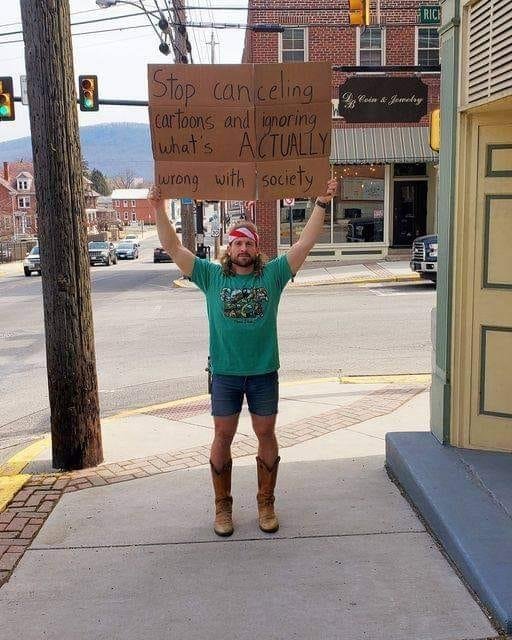 RICH
Stop canceling
cartoons and ignoring
what's ACTUALLY
wrong with society
Coin & Jewelry